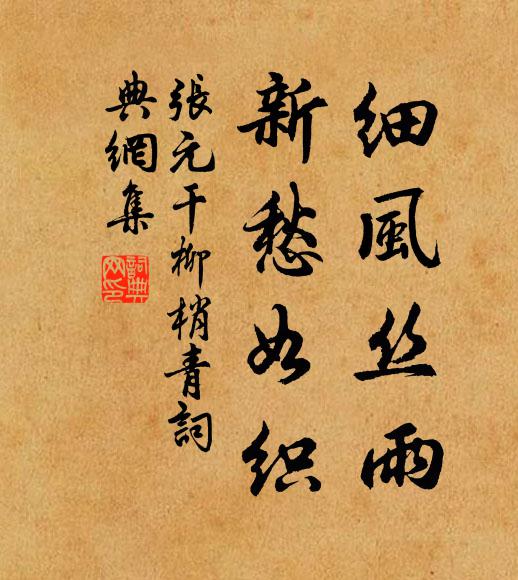 细風丝雨
新愁如织
張元干柳梢青詞
典網集
詞典网印